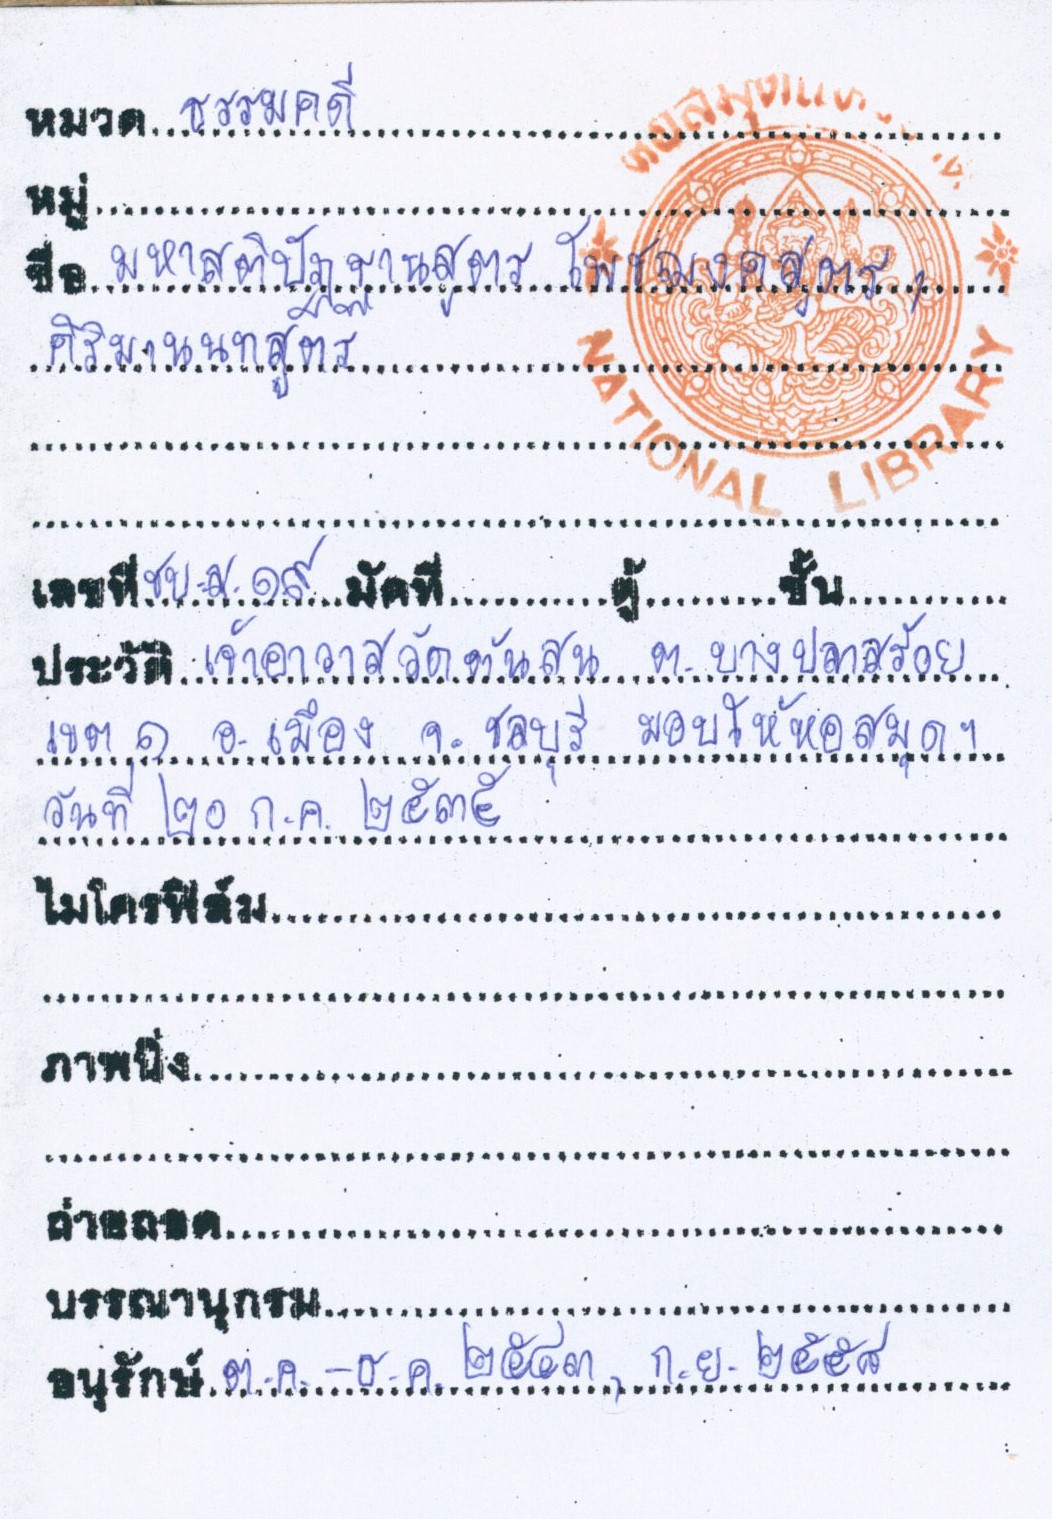 หมวด ธรรมคดี
หมู่
ชื่อ มหาสติปัฏฐานสูตร โพชฌงคสูตร,
คิริมานนทสูตร
NATIONAL LIBRARY
เลขที่ ชบ.ส. ๑๙ มัดที่ ตู้ ชั้น
ประวัติ เจ้าอาวาสวัดต้นสน ต. บางปลาสร้อย
เขต ๑ อ. เมือง จ. ชลบุรี มอบให้หอสมุดฯ
วันที่ ๒๐ ก.ค. ๒๕๓๕
ไมโครฟิล์ม
ภาพนิ่ง
ถ่ายถอด
บรรณานุกรม
อนุรักษ์ ต.ค. – ธ.ค. ๒๕๔๓, ก.ย. ๒๕๕๘